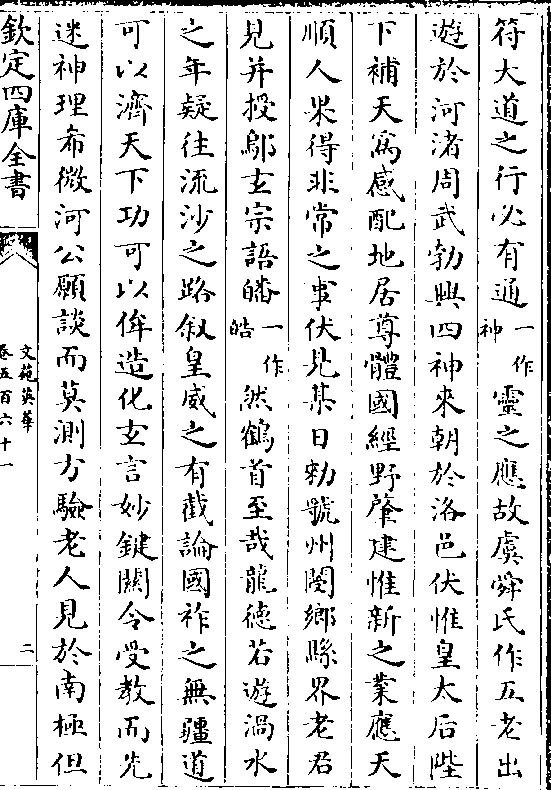 符大道之行必有通一作神靈之應故虞舜氏作五老出
遊於河渚周武勃興四神來朝於洛邑伏惟皇太后陛
下補天爲感配地居尊體國經野肇建惟新之業應天
順人果得非常之事伏見某日勑虢州閿鄉縣界老君
見并授鄔玄宗語皤一作皓然鶴首至哉龍德若遊渦水
之年疑往流沙之路叙皇威之有截論國祚之無疆道
可以濟天下功可以侔造化玄言妙鍵關令受教而先
迷神理希微河公願談而莫測方驗老人見於南極但
欽定四庫全書
文苑英華
卷五百六十一
二